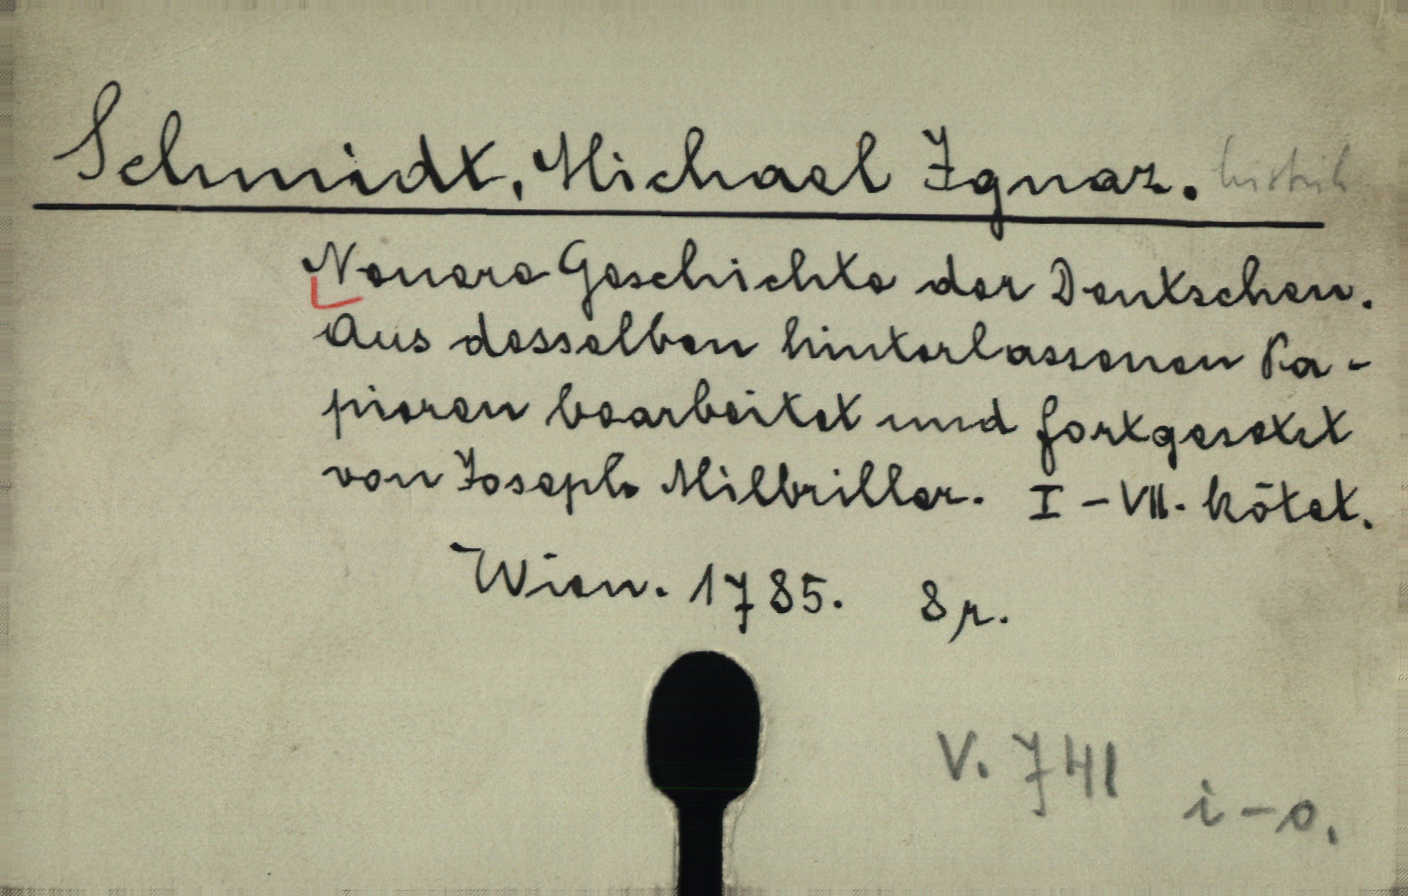 Schmidt, Michael Ignaz.
Neuere Geschichte der Deutschen.
Aus desselben hinterlassenen Pa-
pieren bearbeitet und fortgesetzt
von Joseph Milbiller. I-VII. kötet.
Wien. 1785. 8r.
V. 741
i-o.